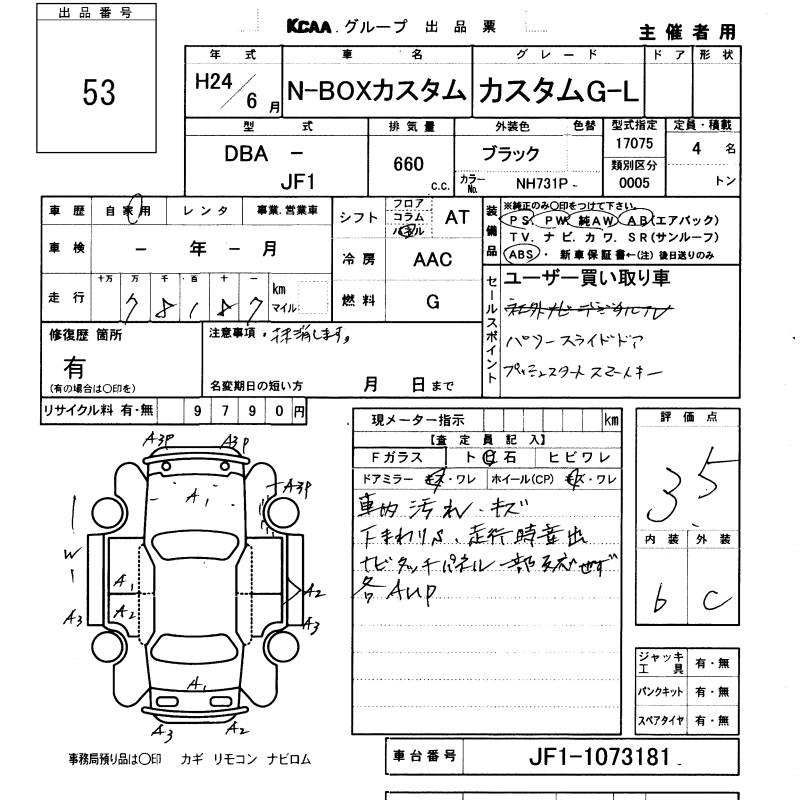 出品番号
53
KCAA グループ 出品票
主催者用
年式 車名 グレード ドア 形状
H24/6月 N-BOXカスタム カスタムG-L
型式 排気量 外装色 色替 型式指定 定員・積載
DBA - JF1
660 c.c.
ブラック
カラーNo. NH731P -
17075
類別区分
0005
4 名
トン
車歴 自家用 レンタ 事業.営業車
車検 - 年 - 月
走行 十万 万 千 百 十 一
7 8 1 8 7 km マイル
シフト フロア コラム パネル AT
冷房 AAC
燃料 G
装備品
※純正のみ〇印をつけて下さい。
PS PW 純AW AB(エアバック)
TV. ナビ. カワ. SR(サンルーフ)
ABS・新車保証書←(注) 後日送りのみ
セールスポイント
ユーザー買い取り車
社外ナビ デジタルTV
パワースライドドア
プッシュスタート スマートキー
修復歴 箇所
有
(有の場合は〇印を)
注意事項・抹消します。
名変期日の短い方 月 日まで
リサイクル料 有・無 9790円
現メーター指示 km
【査定員記入】
Fガラス ト 石 ヒビワレ
ドアミラー キズ・ワレ ホイール(CP) キズ・ワレ
車内 汚れ・キズ
下まわりS、走行時音出
ナビタッチパネル一部反応せず
各AUP
評価点
3.5
内装 外装
b C
A3P A3P
A1 A3P
W
A1
A2 A2
A3 A3
A1
A3 A2
ジャッキ工具 有・無
パンクキット 有・無
スペアタイヤ 有・無
事務局預り品は〇印 カギ リモコン ナビロム
車台番号 JF1-1073181 -